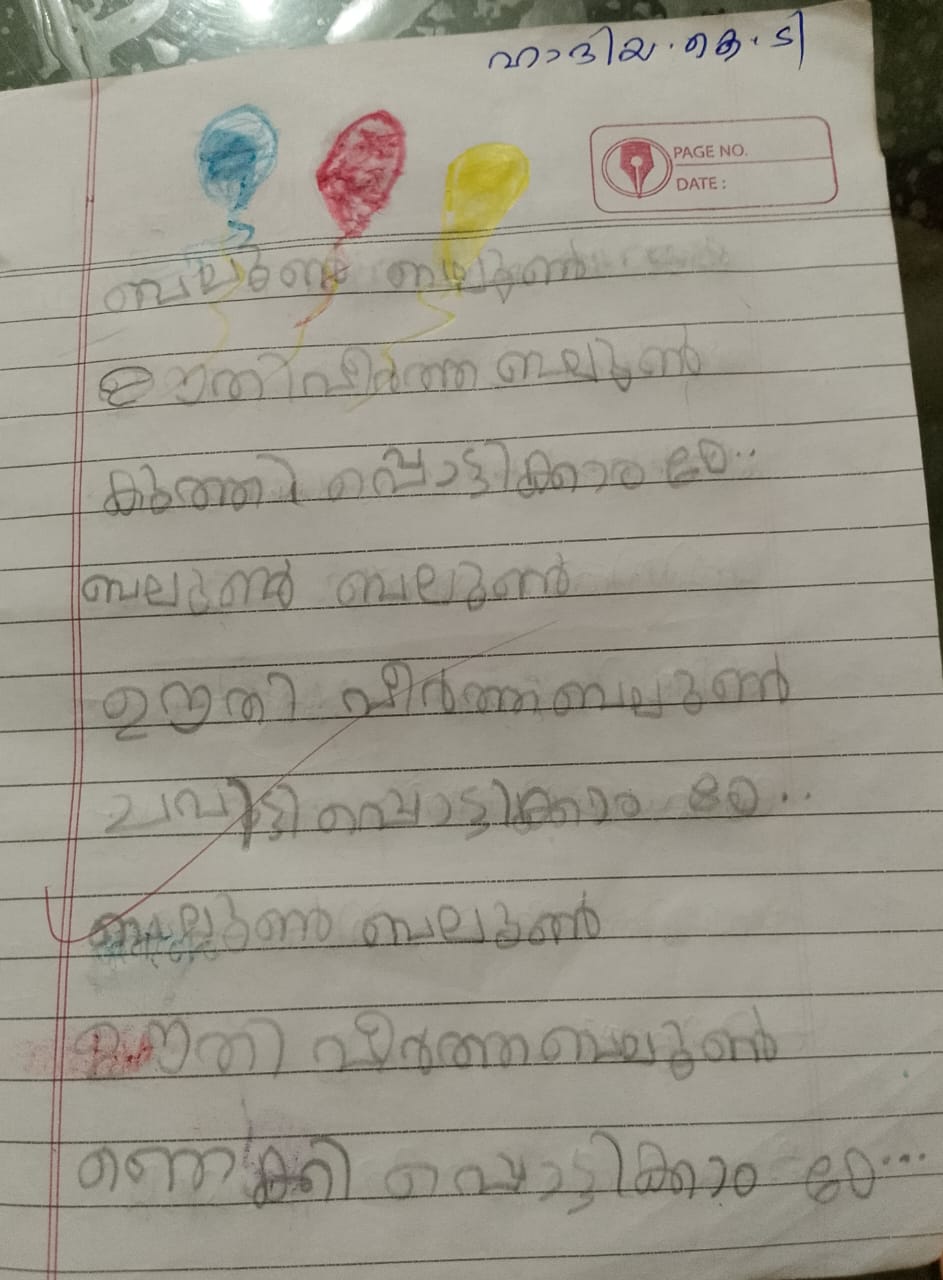 ഹാദിയ. കെ. ടി
PAGE NO.
DATE :
ബലൂൺ ബലൂൺ
ഊതിവീർത്ത ബലൂൺ
കുത്തി പ്പൊട്ടിക്കാം ഠേ..
ബലൂൺ ബലൂൺ
ഊതി വീർത്ത ബലൂൺ
ചവിട്ടി പ്പൊട്ടിക്കാം ഠേ..
ബലൂൺ ബലൂൺ
ഊതി വീർത്ത ബലൂൺ
ഞെക്കി പ്പൊട്ടിക്കാം ഠേ...